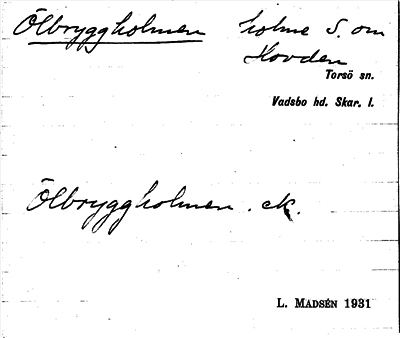 Ölbryggholmen holme S. om
Hovden
Torsö sn.
Vadsbo hd. Skar. l.
Ölbryggholmen. ek.
L. MADSÉN 1931